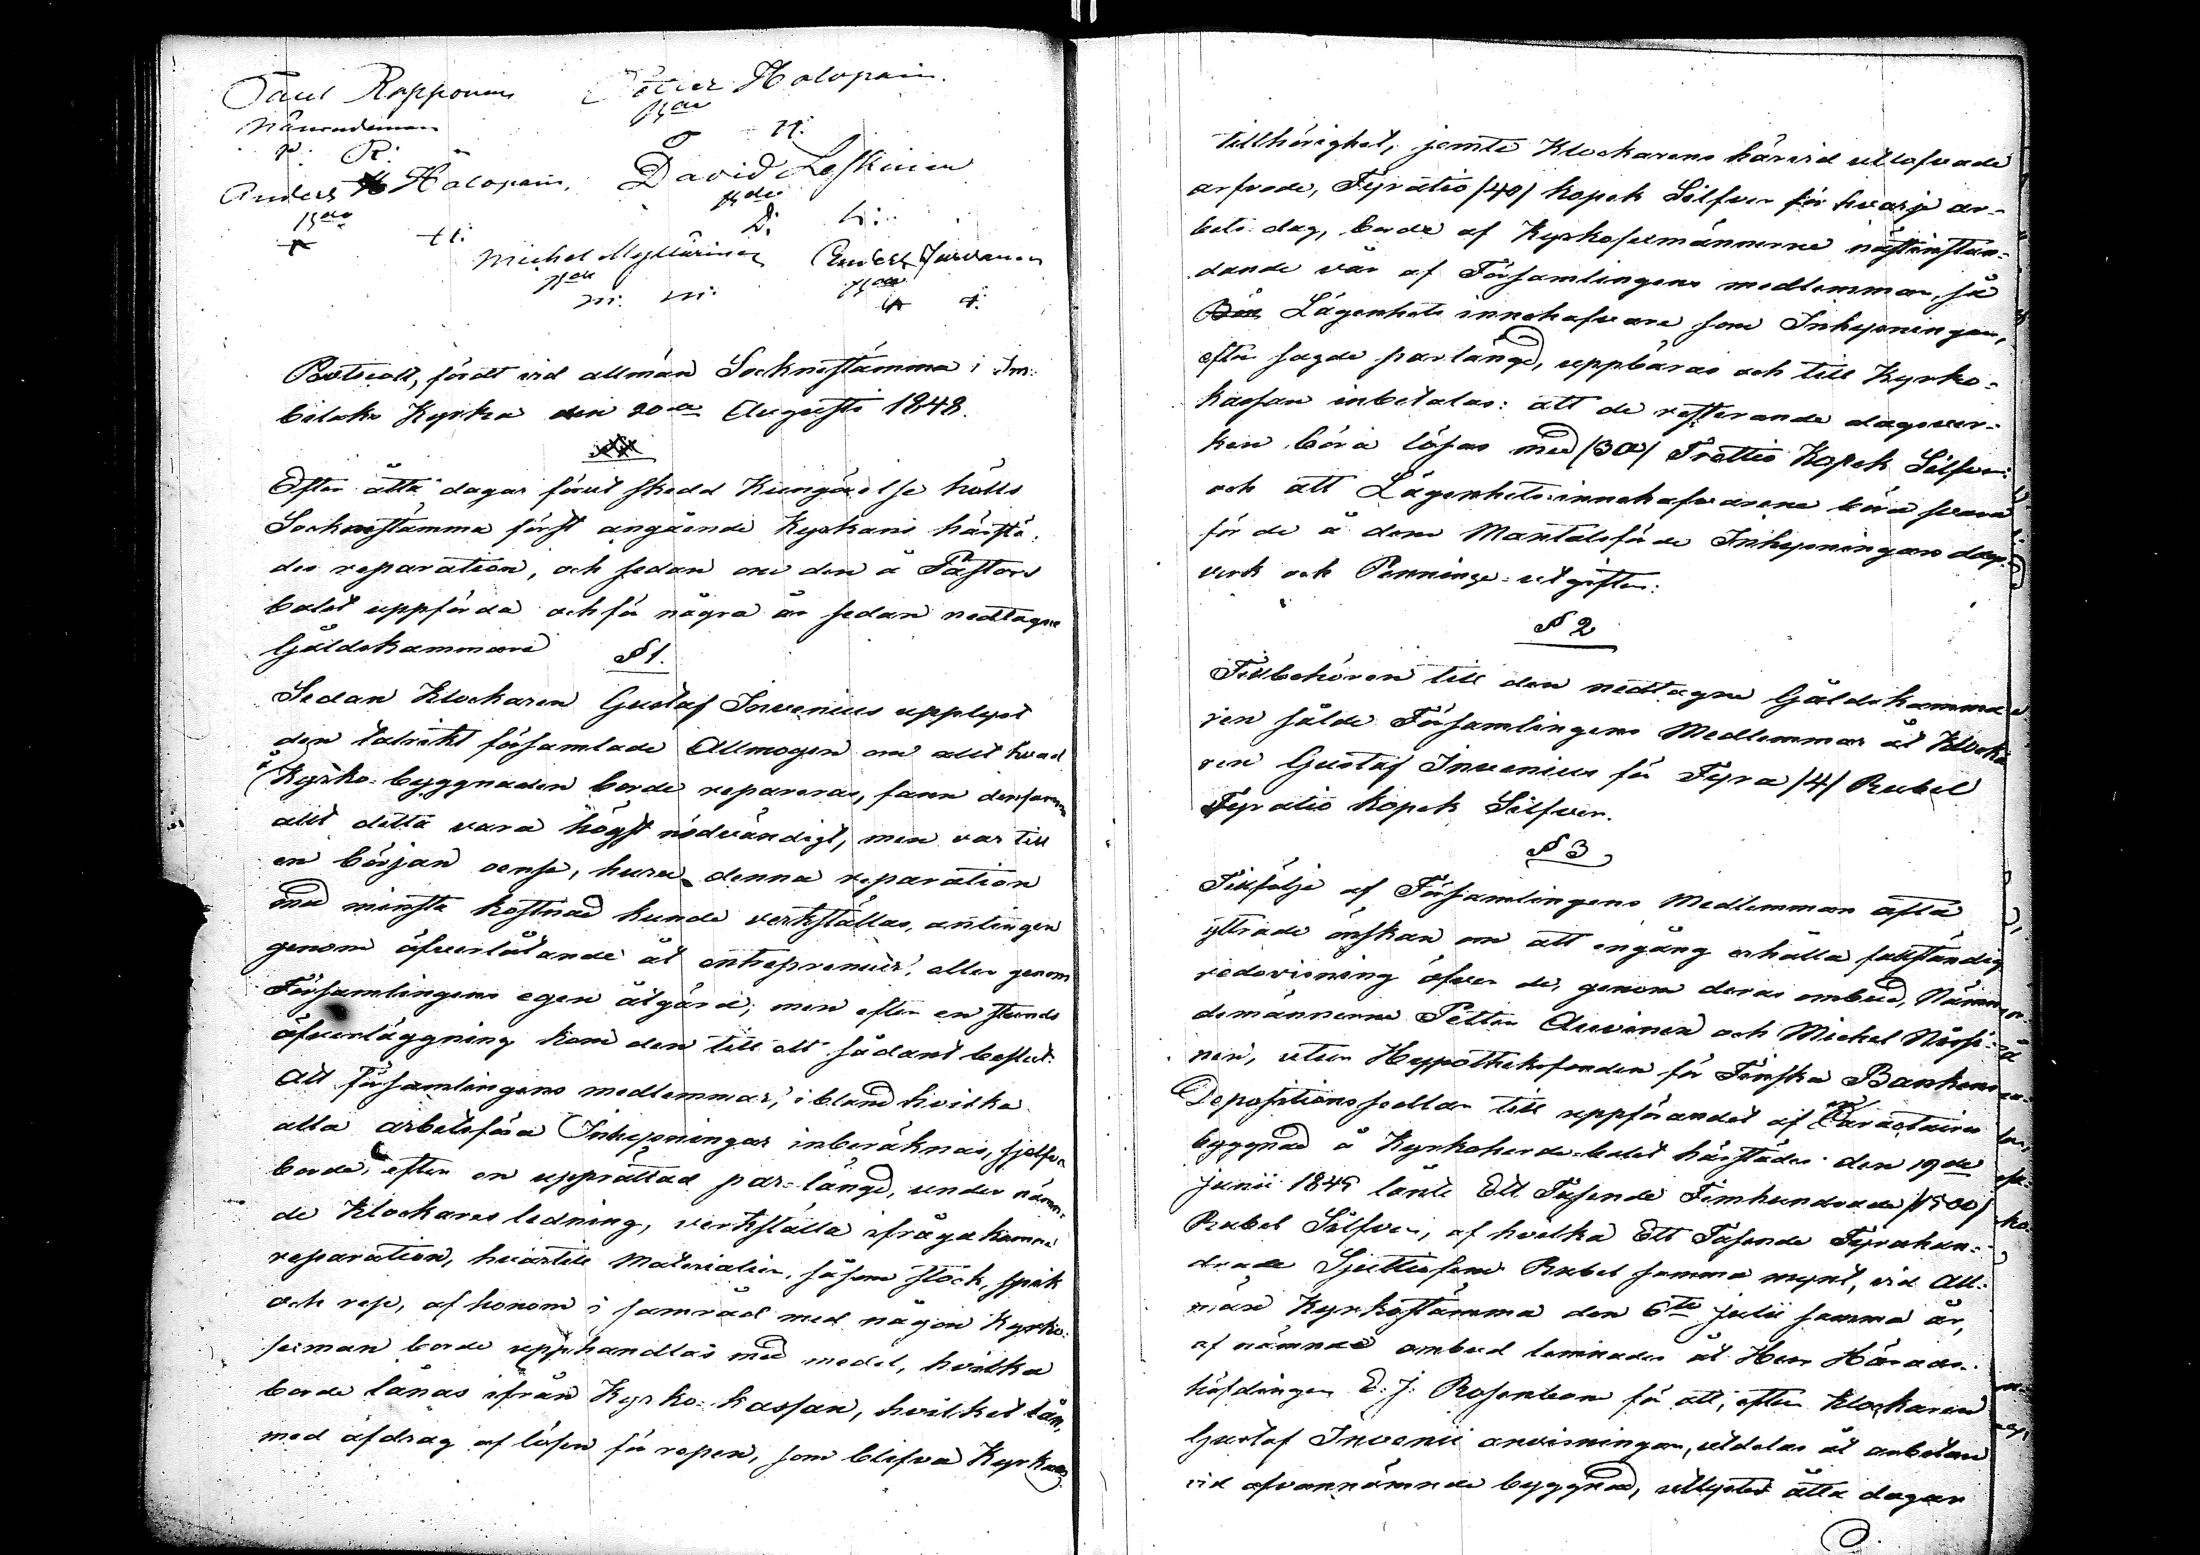 Paul Ropponen Petter Halopain.
Nämndeman Bde
P: R: P H.
Anders Halopain, David Leskinen
Bde Bde
A H: D: L:
Michel Myllärinen Anders Turunen
Bde Bde
M: M: A T:
Protocoll, fördt vid allmän Socknestämma i Im-
bilaks Kyrka den 20de Augusti 1848.
Efter åtta dagar förut skedd Kungörelse hölls
Socknestämma först angående Kyrkans härstä-
des reparation, och sedan om den å Pastors
bolet uppförda och för några år sedan nedtagne
Gäldekammare
§ 1.
Sedan Klockaren Gustaf Invenius upplyst
den talrikt församlade Allmogen om allt hvad
å Kyrko-byggnaden borde repareras, fann densamma
allt detta vara högst nödvändigt, men var till
en början oense, huru denna reparation
med minsta kostnad kunde verkställas, antingen
genom öfverlåtande åt entreprenör, eller genom
Församlingens egen åtgärd; men efter en stunds
öfverläggning kom den till ett sådant beslut:
Att församlingens medlemmar, ibland hvilka
alla arbetsföra Inhysningar inberäknas, sjelfva
borde, efter en upprättad par-längd, under nämn-
de Klockares ledning, verkställa ifrågakomne
reparation, hvartill Materialier, såsom stock, spik
och rep, af honom i samråd med någon Kyrko-
sexman borde upphandlas med medel, hvilka
borde lånas ifrån Kyrko-kassan, hvilket lån,
med afdrag af lösen för repen, som blifva Kyrkans
tillhörighet, jemte Klockarens härvid utlofvade
arfvode, Fyratio (40) kopek Silfver för hvarje ar-
bets dag, borde af Kyrkosexmännerne nästinstun-
dande vår af Församlingens medlemmar, så
Lägenhets innehafvare som Inhysningar,
efter sagde parlängd, uppbäras och till Kyrko-
kassan inbetalas: att de resterande dagsver-
ken böra lösas med (30) Trettio Kopek Silfver:
och att Lägenhets-innehafvarene böra svara
för de å dem Mantalsförde Inhysningars dags-
verk och Penninge-utgifter:
§ 2
Tillbehören till den nedtagne Gäldekamma-
ren sålde Församlingens Medlemmar åt Klocka-
ren Gustaf Invenius för Fyra (4) Rubel
Fyratio kopek Silfver.
§ 3
Tillfölje af Församlingens Medlemmar ofta
yttrade önskan om att engång erhålla fullständig
redovisning öfver de, genom deras ombud, Nämn-
demännerne Petter Auvinen och Michel
nen, utur Hypotheksfonden för Finska Bankens
Depositionssedlar till uppförandet af en Caractairs
byggnad å Kyrkoherde-bolet härstädes den 19de
Junii 1845 lånte Ett Tusende Femhundrade (1500)
Rubel Silfver, af hvilka Ett Tusende Fyrahun-
drade Sjuttiofem Rubel samma mynt, vid All-
män Kyrkostämma den 6te Julii samma år,
af nämnde ombud lemnades åt Herr Härads-
höfdingen E. J. Rosenbom för att, efter Klockaren
Gustaf Invenii anvisningar, utdelas åt arbetare
vid ofvannämnde byggnad, utlystes åtta dagar